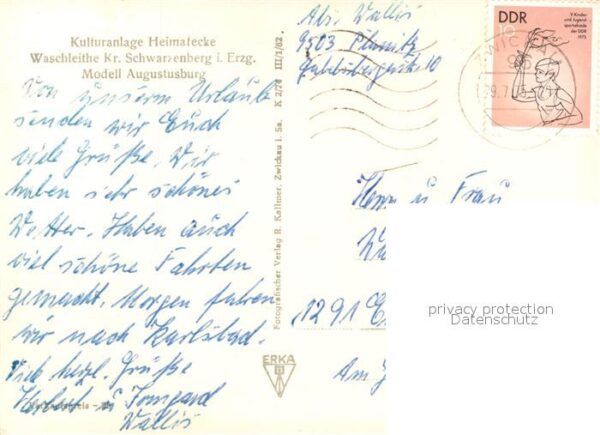 Kulturanlage Heimatecke
Waschleithe Kr. Schwarzenberg i. Erzg.
Modell Augustusburg
Von unserm Urlaub
senden wir Euch
viele Grüße. Wir
haben sehr schönes
Wetter. Haben auch
viel schöne Fahrten
gemacht. Morgen fahren
wir nach Karlsbad.
Viele herzl. Grüße
Herbert u Irmgard
Wallis
Fotografischer Verlag R. Kallmer, Zwickau i. Sa. K 2/70 III/1/62.
ERKA
Abs. Wallis
9503 Planitz
10
DDR
10
V. Kinder-
und Jugend-
spartakiade
der DDR
1975
ZWICKAU
29.7.75
Herrn u Frau
1291
Am
privacy protection
Datenschutz